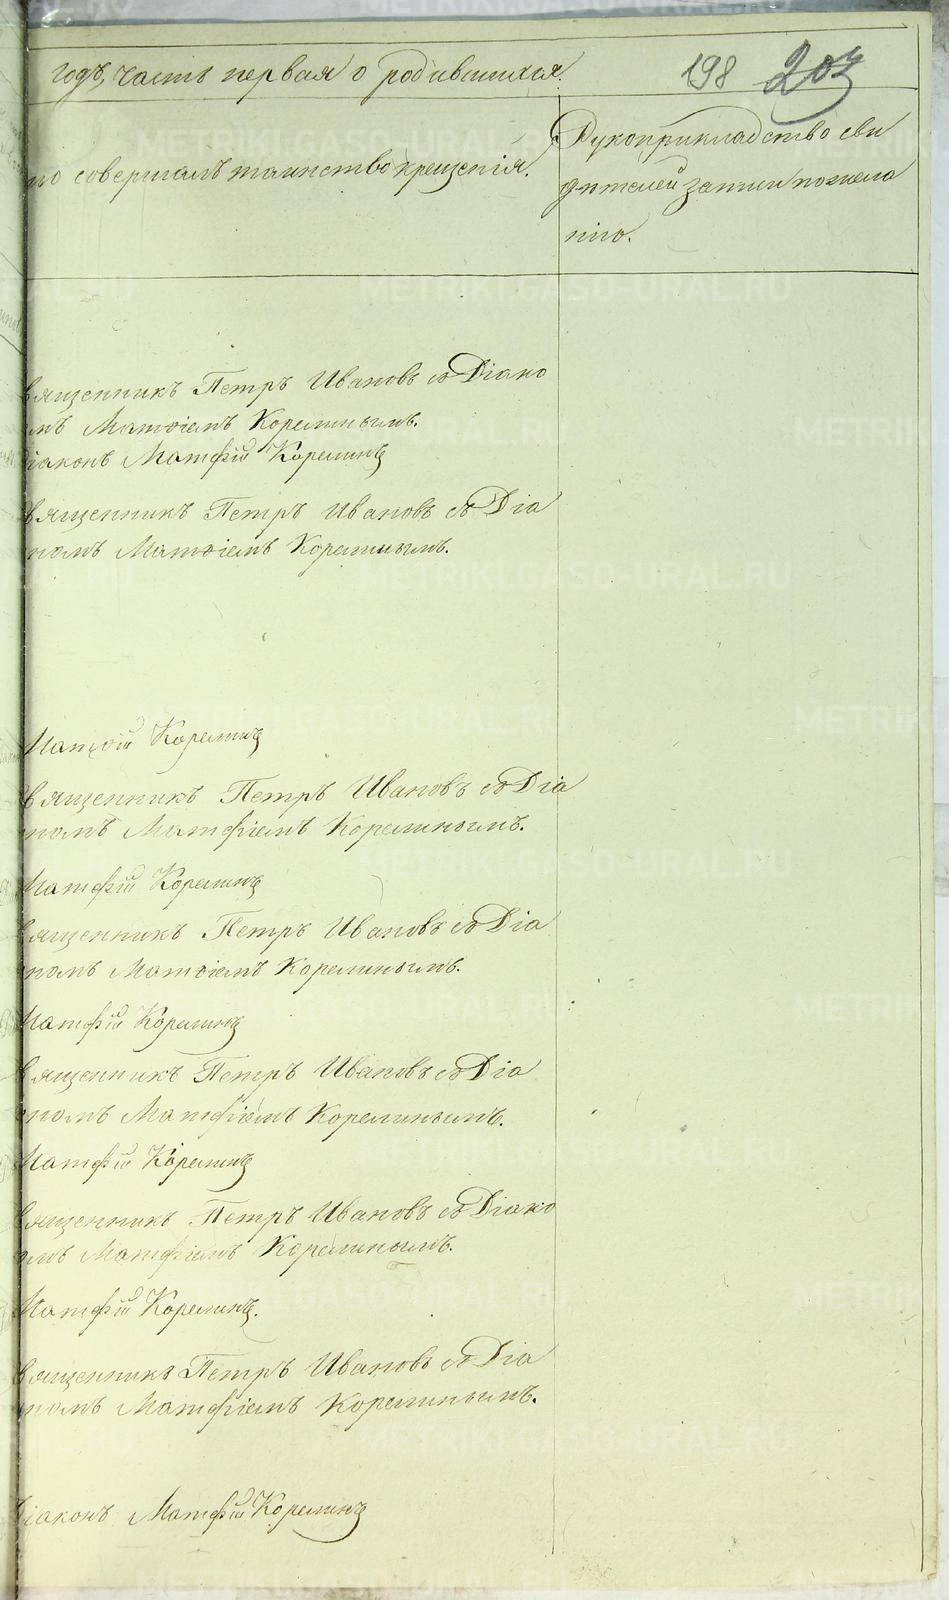 годъ, часть первая о родившихся.
198 203
то совершалъ таинство крещенія.
Рукоприкладство сви
дѣтелей записи по жела
нію.
вященникъ Петръ Ивановъ съ Діако
мъ Матѳіемъ Корелинымъ.
іаконъ Матфій Корелинъ
вященникъ Петръ Ивановъ съ Діа
номъ Матѳіемъ Корелинымъ.
Матѳій Корелинъ
вященникъ Петръ Ивановъ съ Діа
номъ Матфіемъ Корелинымъ.
Матфій Корелинъ
вященникъ Петръ Ивановъ съ Діа
номъ Матѳіемъ Корелинымъ.
Матфій Корелинъ
вященникъ Петръ Ивановъ съ Діа
номъ Матфіемъ Корелинымъ.
Матфій Корелинъ
вященникъ Петръ Ивановъ съ Діако
мъ Матфіемъ Корелинымъ.
Матфій Корелинъ.
вященникъ Петръ Ивановъ съ Діа
номъ Матфіемъ Корелинымъ.
іаконъ Матфій Корелинъ
METRIKI.GASO-URAL.RU